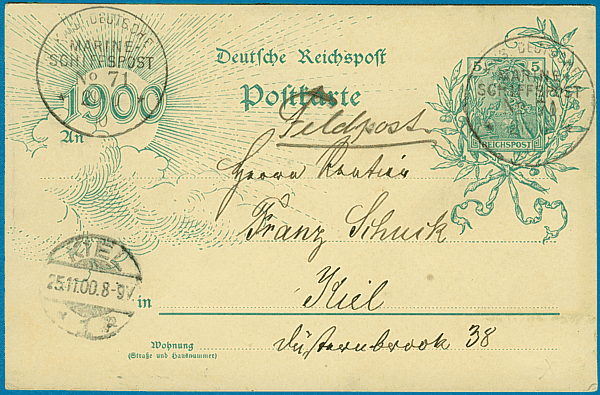 KAIS. DEUTSCHE
MARINE-
SCHIFFSPOST
No 71
Deutsche Reichspost
5 5
REICHSPOST
KAIS. DEUTSCHE
MARINE
SCHIFFSPOST
1900
Postkarte
Feldpost
An
Herrn Rentier
Franz Schuck
KIEL
25.11.00.8-9V
in
Kiel
Wohnung
(Straße und Hausnummer)
Düsternbrook 38